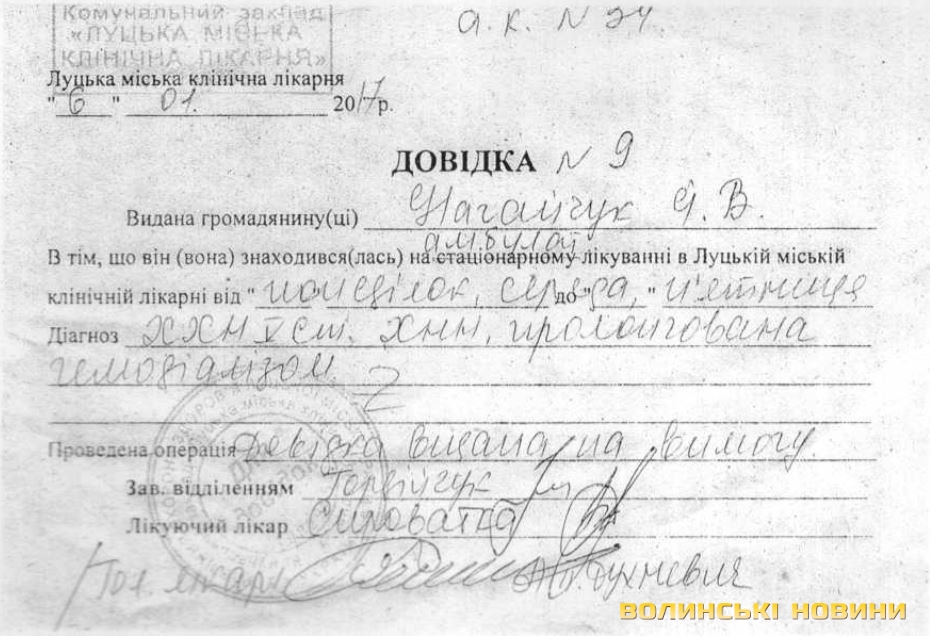 Комунальний заклад
«ЛУЦЬКА МІСЬКА
КЛІНІЧНА ЛІКАРНЯ»
а.к. N 24
Луцька міська клінічна лікарня
"6" 01. 2017р.
ДОВІДКА N 9
Видана громадянину(ці) Нагайчук Я. В.
амбулат
В тім, що він (вона) знаходився(лась) на стаціонарному лікуванні в Луцькій міській
клінічній лікарні від " понеділок, середа, до " " п'ятниця
Діагноз ХХН V ст. ХНН, пролонгована
гемодіалізом
Проведена операція Довідка видана на вимогу.
Зав. відділенням
Лікуючий лікар Сироватка
/Гол. лікаря
ВОЛИНСЬКІ НОВИНИ